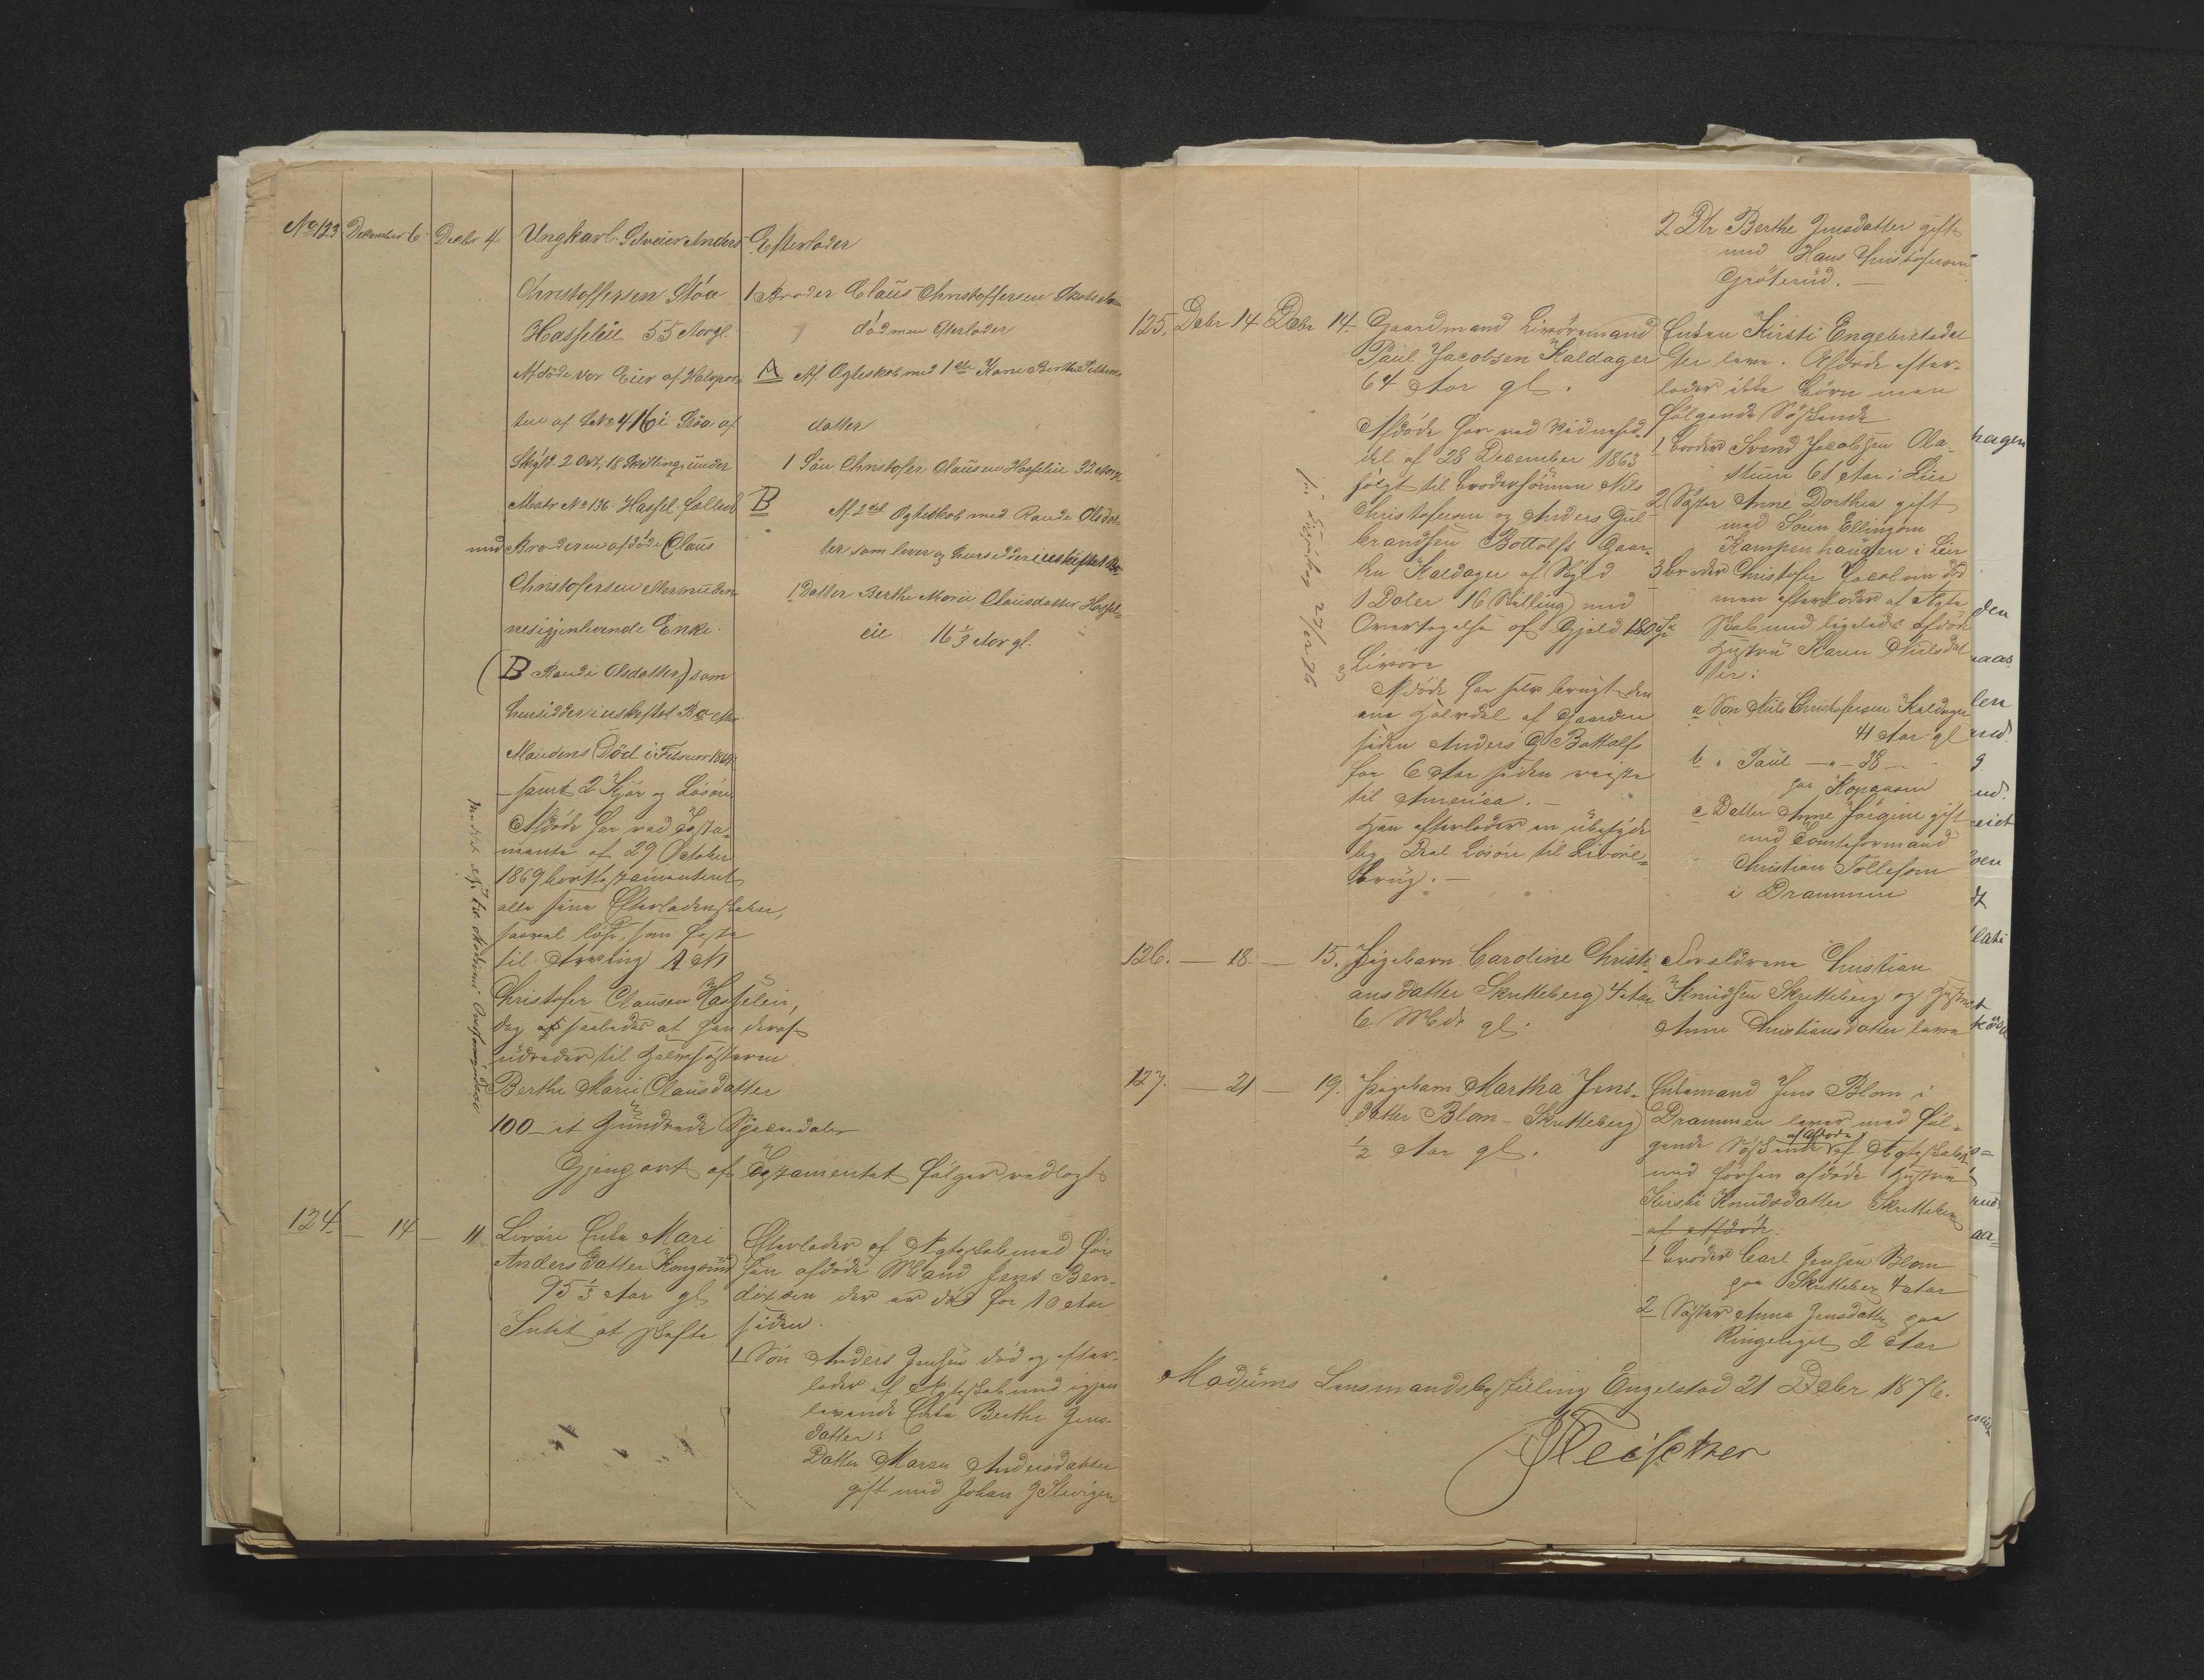 No 123 December 6 Decbr 4 Ungkarl Selveier Anders
Christoffersen Stöa
Hasseleie 55 Aar gl.
Afdöde var Eier af Halvpar-
ten af 416 i Stöa af
Skyld 2 Ort, 18 Skilling under
Matr No 136 Hassel fælled
med Broderen afdöde Claus
Christofersen eller nu den-
nes igjenlevende Enke
(B Randi Olsdatter) som
hensidder i uskiftet Bo efter
Mandens Död i Februar 1869
samt 2 Kjör og Lösöre
Afdöde har ved Testa-
mente af 29 October
1869 borttestamenteret
alle sine Efterladenskaber,
saavel löst som fast
til Arving A No 1
Christofer Clausen Hasseleie,
dog saaledes at han deraf
udreder til Halvsösteren
Berthe Marie Clausdatter
100 et Hundrede Speciedaler
Gjenpart af Testamentet fölger vedlagt
Efterlader
1 Broder Claus Christoffersen
död men efterlader
A Af Ægteskab med 1ste Kone Berthe
datter
1 Sön Christofer Clausen Hasseleie 32 Aar gl
B Af 2det Ægteskab med Randi Olsdat-
ter som lever og hensidder i uskiftet Bo
1 Datter Berthe Marie Clausdatter Hassel-
eie 16 1/3 Aar gl.
124 — 14 — 11 Livöre Enke Mari
Andersdatter Kongerud
95 1/3 Aar gl
Intet at skifte
Efterlader af Ægteskab med för
hen afdöde Mand Jens Ben-
dixsen der er död for 10 Aar
siden.
1 Sön Anders Jensen död og efter-
lader af Ægteskab med igjen
levende Enke Berthe Jens-
datter:
Datter Maren Andersdatter
gift med Johan
2 Dtr Berthe Jensdatter gift
med Hans Christofersen
Gröterud.
125. Debr 14 Debr 14. Gaardmand Livöremand
Paul Jacobsen Kaldager
64 Aar gl.
Afdöde har ved
af 28 December 1863
solgt til Brodersönnen Nils
Christofersen og Anders Gul-
brandsen Bottolfs Gaar-
den Kaldager af Skyld
1 Daler 16 Skilling med
Overtagelse af Gjæld 180
Livöre
Afdöde har selv brugt den
ene Halvdel af Gaarden
siden Anders G Bottolfs
for 6 Aar siden reiste
til America.
Han efterlader en ubetyde
lig Deel Lösöre til Livöre-
brug.
Enken Kirsti Engebretsdat
ter lever. Afdöde efter-
lader ikke Börn men
fölgende Söskende
1 Broder Svend Jacobsen Ola-
stuen 61 Aar i Lier
2 Söster Anne Dorthea gift
med Sören Ellingsen
Kampenhaugen i Lier
3 Broder Christofer Jacobsen död
men efterlader af Ægte
skab med ligeledes afdöde
Hustru Karen Nielsdat
ter:
a Sön Nils Christofersen Kaldager
41 Aar gl
b " Paul — " — 38 —
paa Kopaasen
c Datter Anne Jörgine gift
med Tomteformand
Christian Tollefsen
i Drammen
126. — 18 — 15. Pigebarn Caroline Christi-
ansdatter Skretteberg 4 Aar
6 Mdr gl.
Forældrene Christian
Knudsen Skretteberg og Hustru
Anne Christiansdatter lever
127. — 21 — 19. Pigebarn Martha Jens-
datter Blom - Skretteberg
1/2 Aar gl.
Enkemand Jens Blom i
Drammen lever med föl-
gende Söskende af Afdöde af Ægteskabet
med forhen afdöde Hustru
Kirsti Knudsdatter Skretteberg
af afdöde:
1 Broder Carl Jensen Blom
paa Skretteberg 4 Aar
2 Söster Anna Jensdatter paa
Ringeriget 2 Aar
Modums Lensmandsbestilling Engelstad 21 Debr 1876.
Fleischer